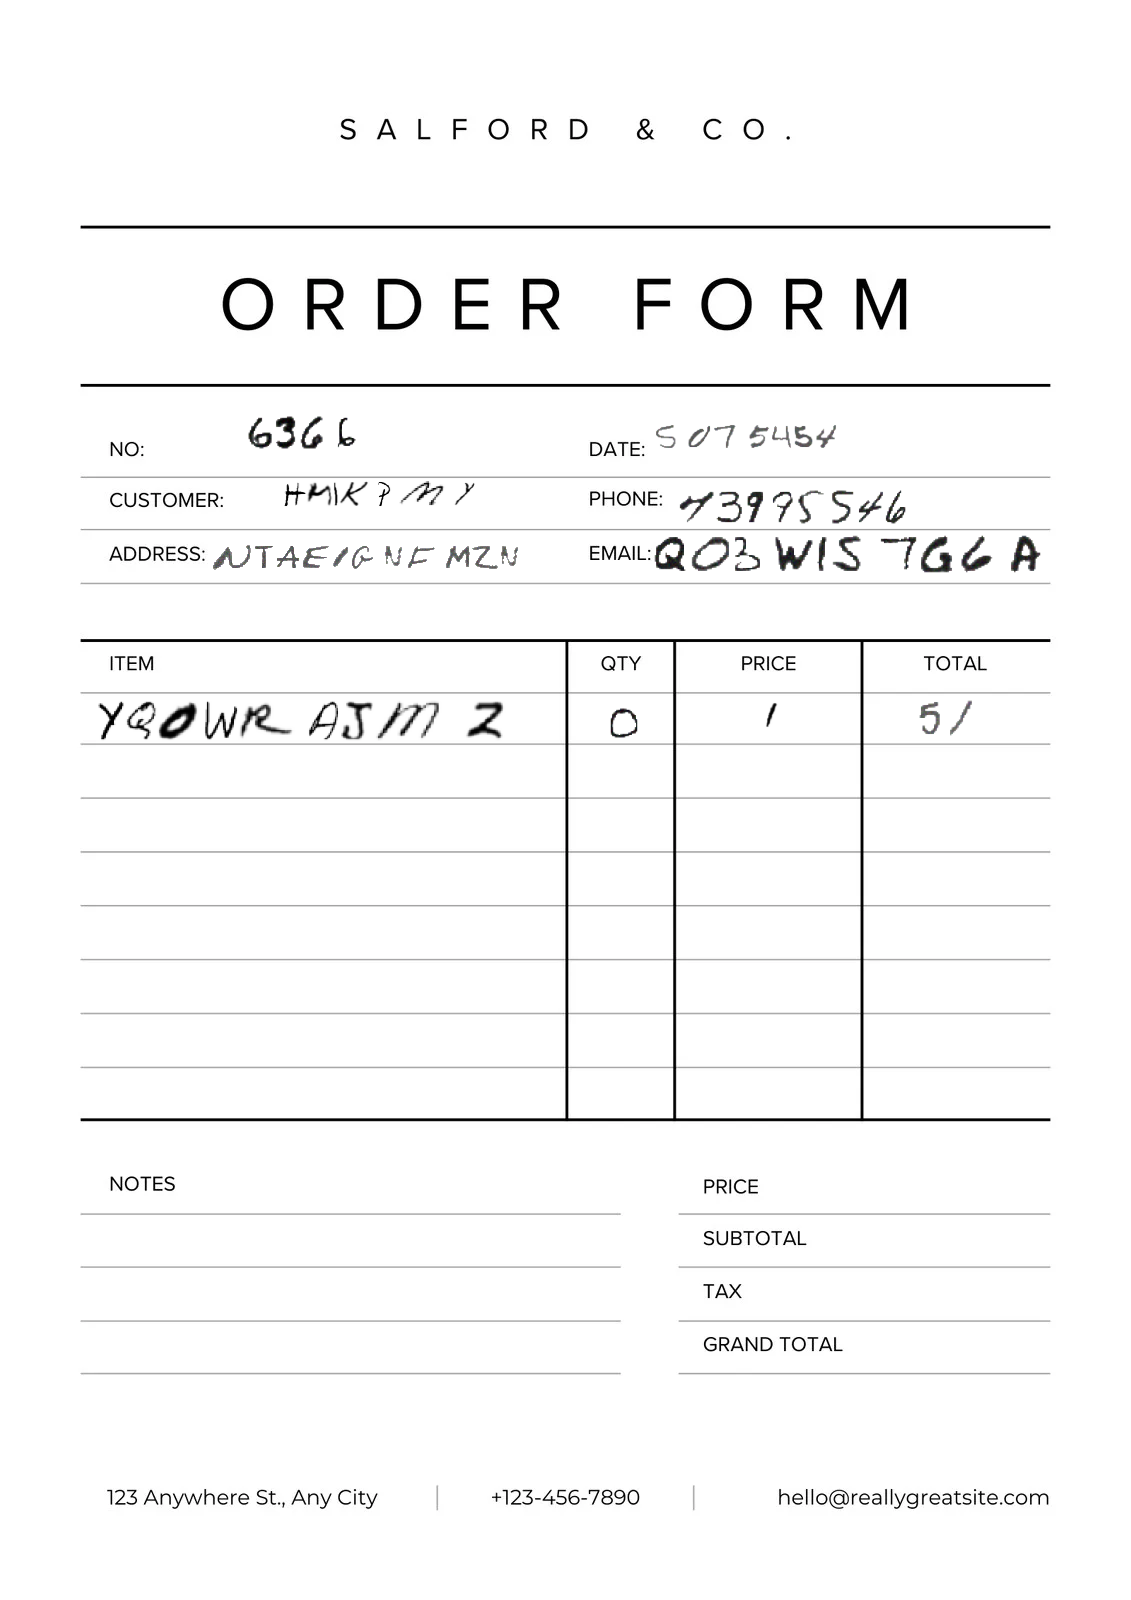 SALFORD & CO.
ORDER FORM
NO: 6366 DATE: 5075454
CUSTOMER: HMIKPMY PHONE: 73975546
ADDRESS: NTAEIGNFMZN EMAIL: QO3WIS7G6A
ITEM QTY PRICE TOTAL
YQOWRAJMZ 0 1 51
NOTES PRICE
SUBTOTAL
TAX
GRAND TOTAL
123 Anywhere St., Any City | +123-456-7890 | hello@reallygreatsite.com